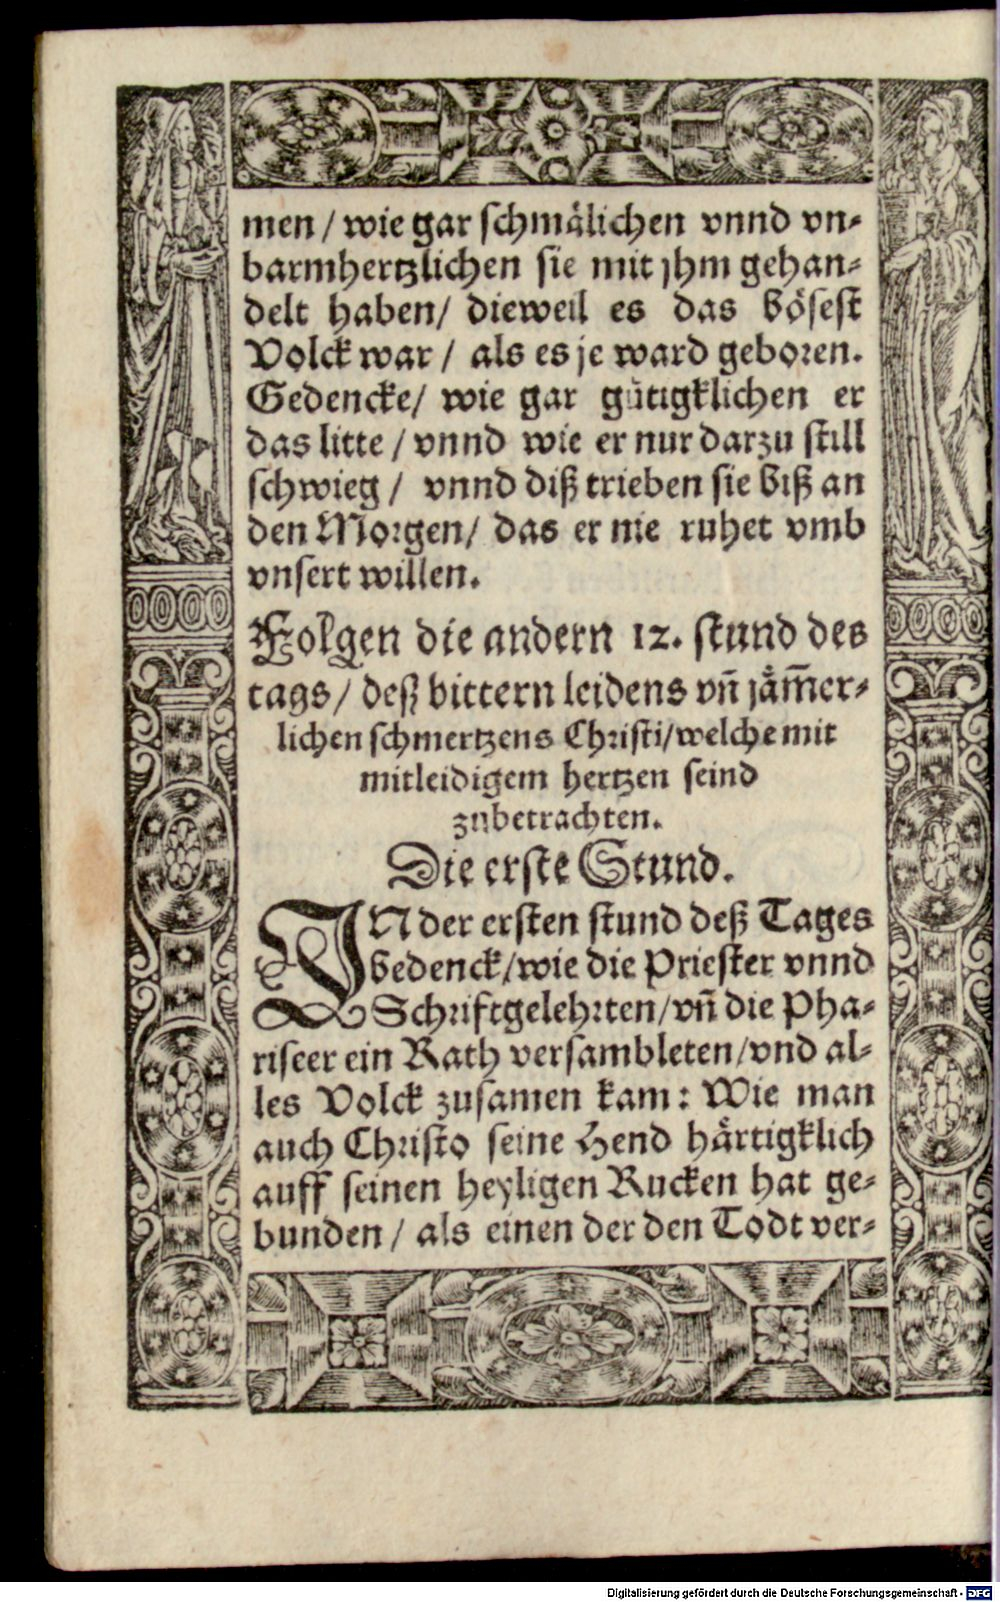 men / wie gar schmälichen vnnd vn-
barmhertzlichen sie mit jhm gehan-
delt haben / dieweil es das bösest
Volck war / als es je ward geboren.
Gedencke / wie gar gütigklichen er
das litte / vnnd wie er nur darzu still
schwieg / vnnd diß trieben sie biß an
den Morgen / das er nie ruhet vmb
vnsert willen.
Folgen die andern 12. stund des
tags / deß bittern leidens vñ jäm̃er-
lichen schmertzens Christi / welche mit
mitleidigem hertzen seind
zubetrachten.
Die erste Stund.
IN der ersten stund deß Tages
bedenck / wie die Priester vnnd
Schrifftgelehrten / vñ die Pha-
riseer ein Rath versambleten / vnd al-
les Volck zusamen kam: Wie man
auch Christo seine Hend härtigklich
auff seinen heyligen Rucken hat ge-
bunden / als einen der den Todt ver-
Digitalisierung gefördert durch die Deutsche Forschungsgemeinschaft - DFG